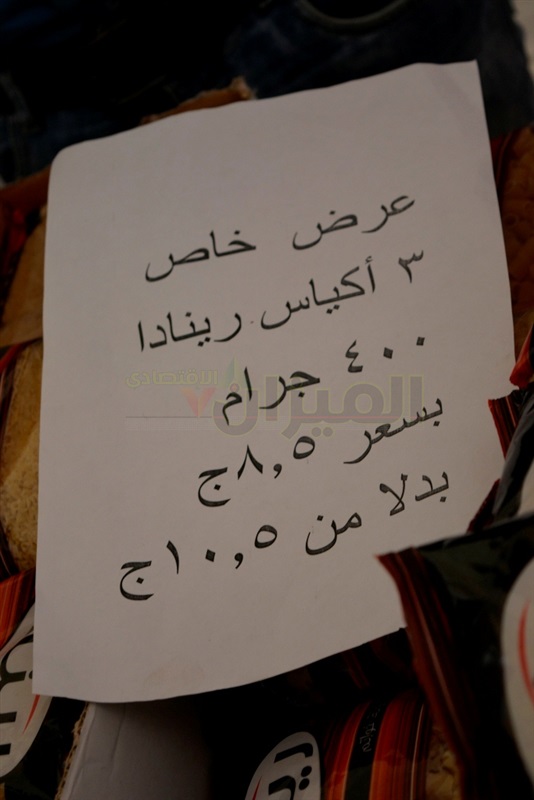 عرض خاص
٣ أكياس رينادا
٤٠٠ جرام
بسعر ٨,٥ج
بدلا من ١٠,٥ج
الميزان
الاقتصادى